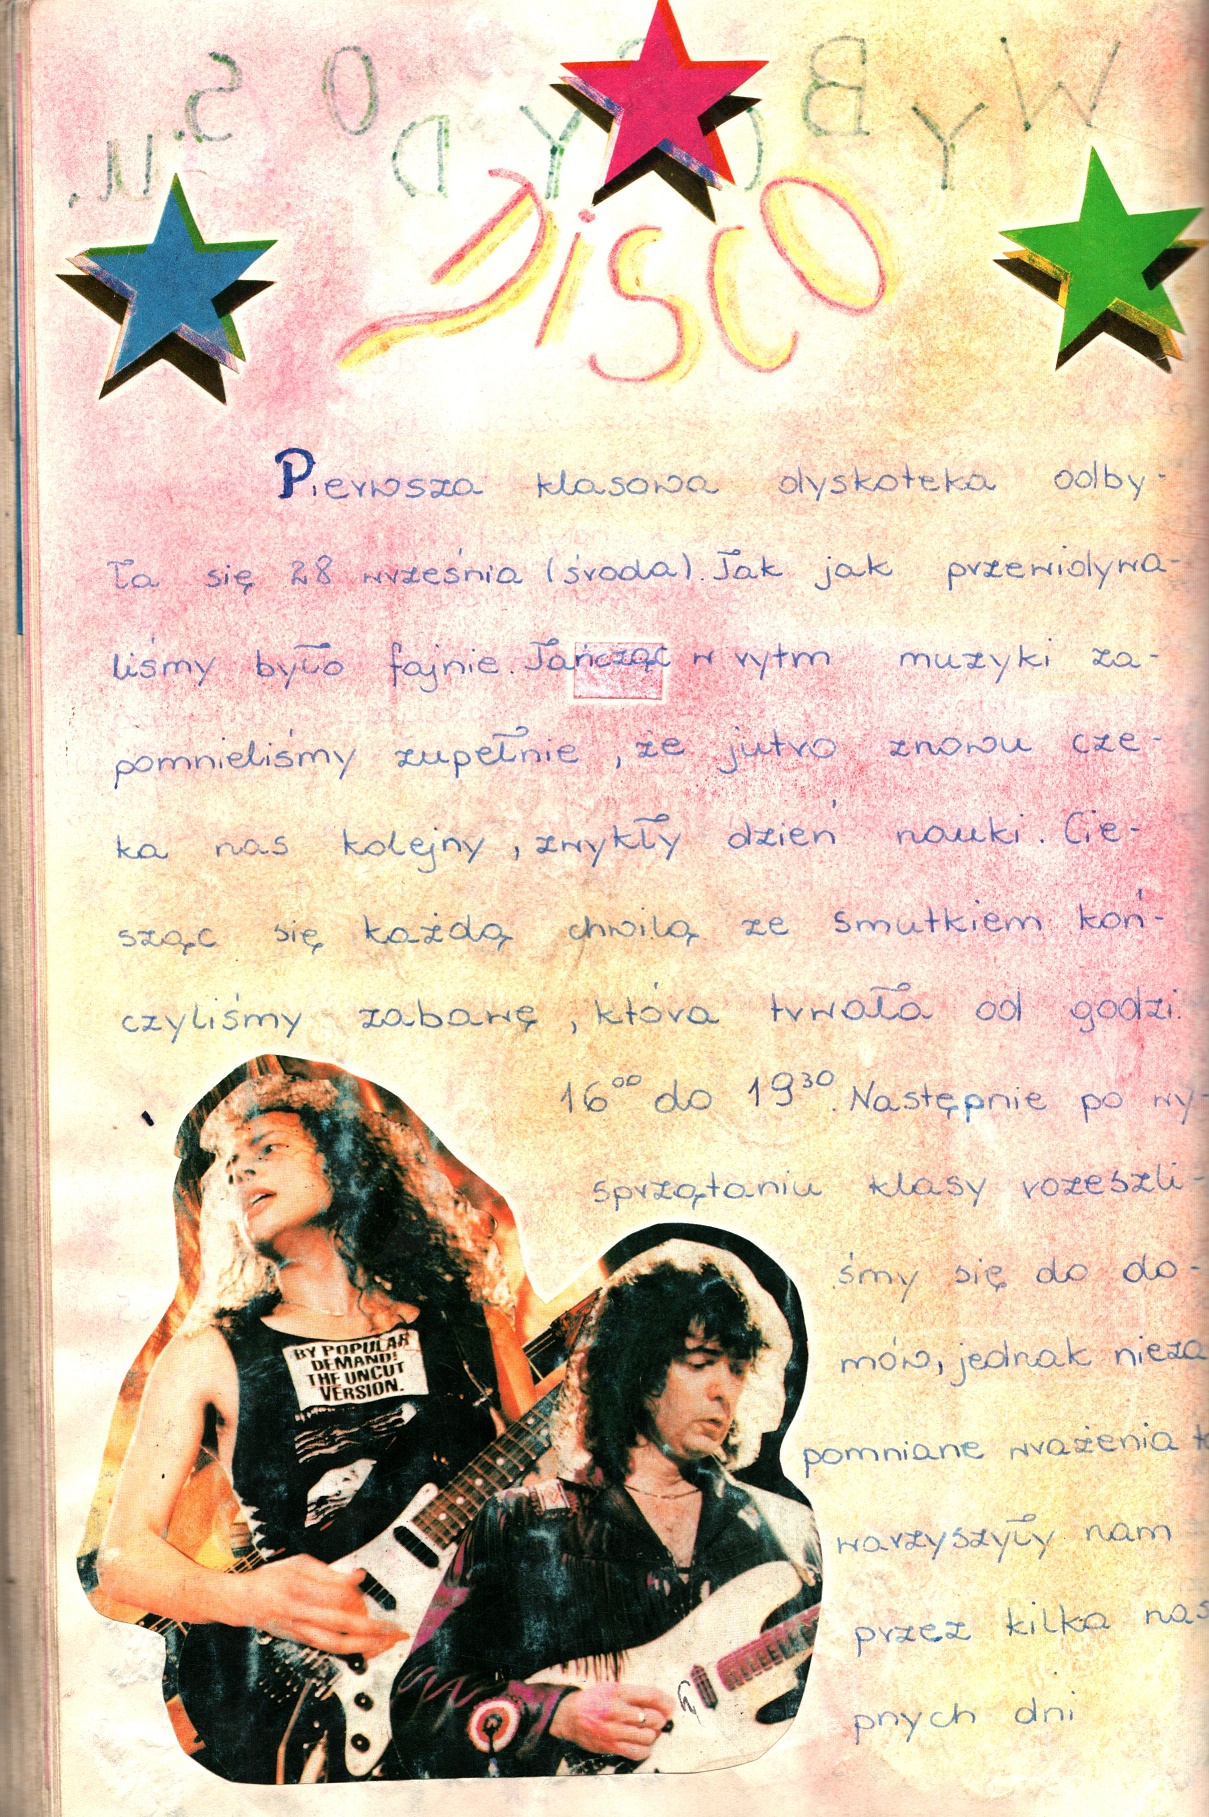 WYBORY DO S.U.
DISCO
Pierwsza klasowa dyskoteka odby-
ła się 28 września (środa). Tak jak przewidywa-
liśmy było fajnie. Tańcząc w rytm muzyki za-
pomnieliśmy zupełnie, że jutro znowu cze-
ka nas kolejny, zwykły dzień nauki. Cie-
sząc się każdą chwilą ze smutkiem koń-
czyliśmy zabawę, która trwała od godzi.
16⁰⁰ do 19³⁰. Następnie po wy-
sprzątaniu klasy rozeszli-
śmy się do do-
mów, jednak nieza
pomniane wrażenia to
warzyszyły nam
przez kilka nas
pnych dni
BY POPULAR
DEMAND!
THE UNCUT
VERSION.